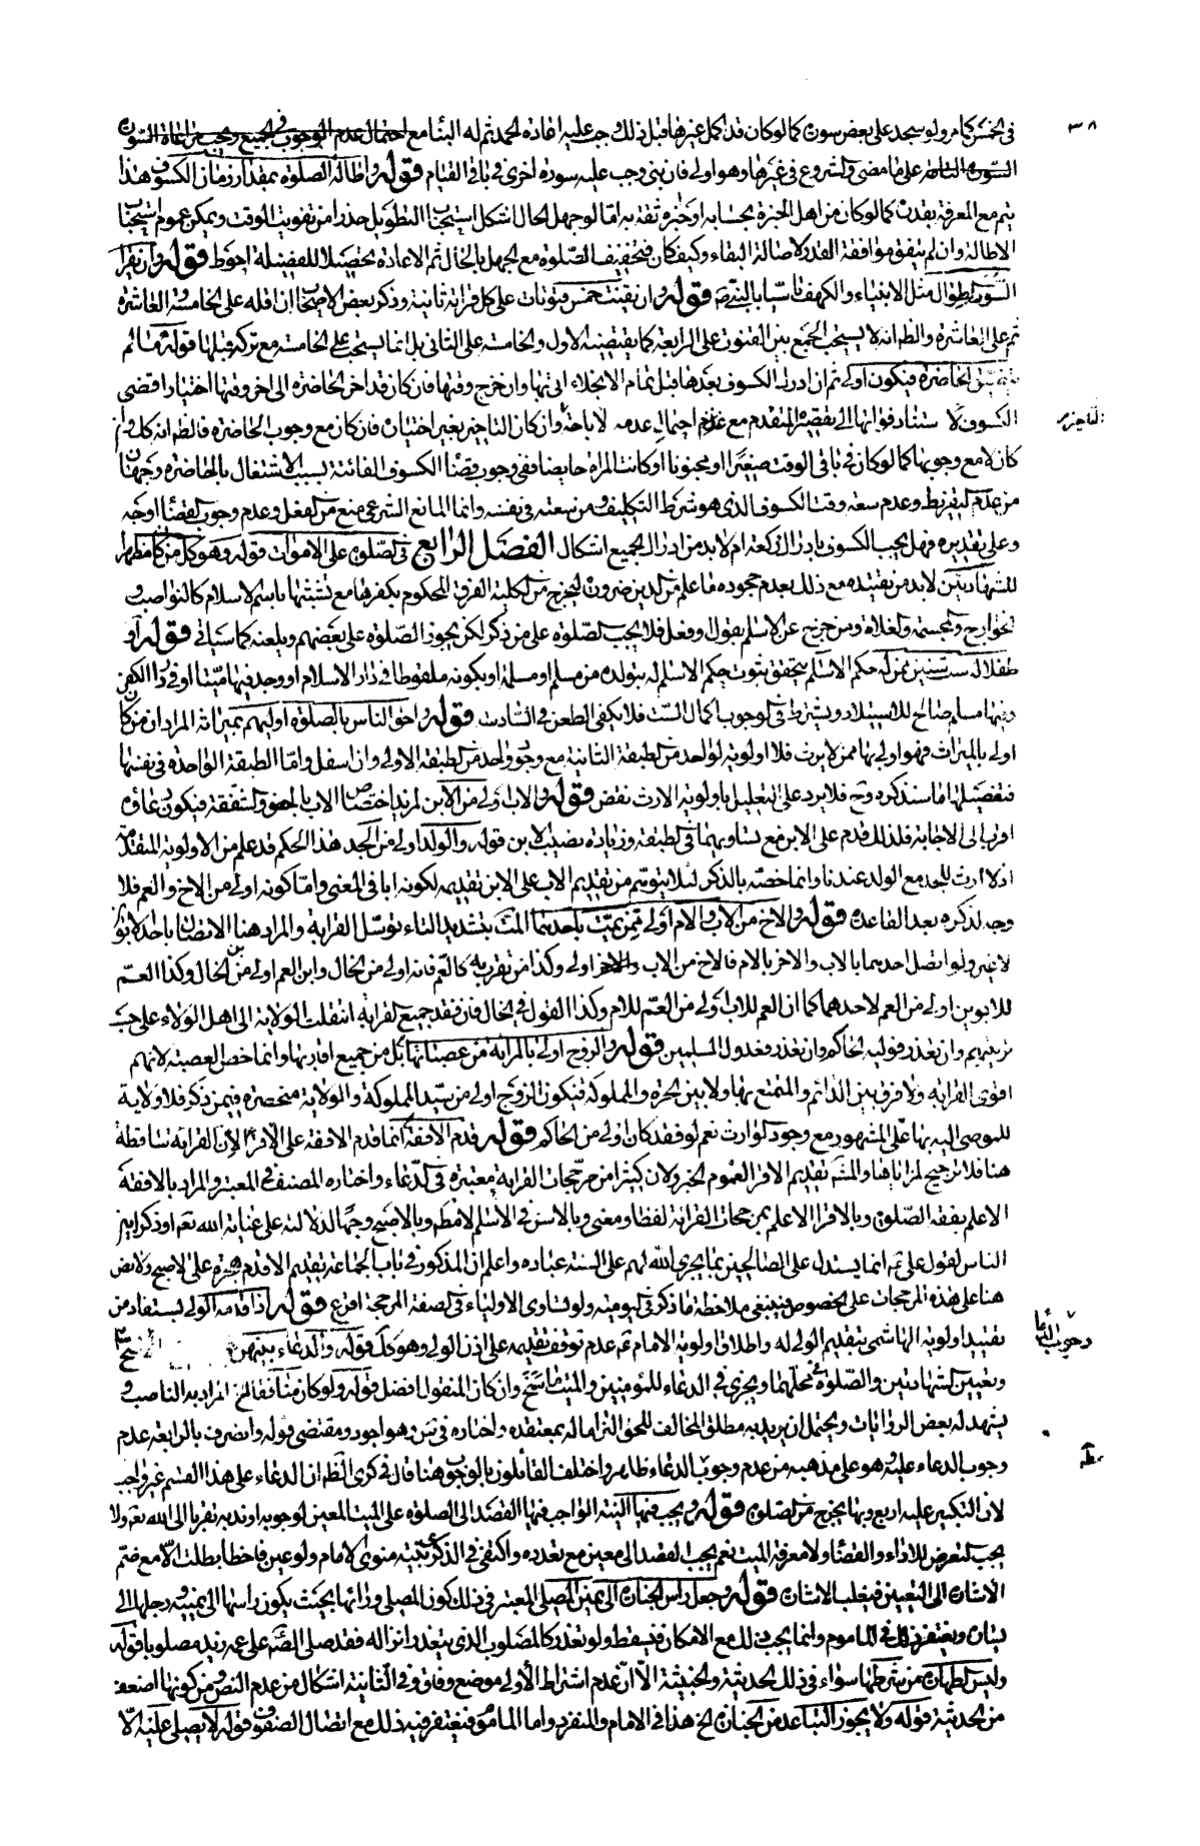 في الخمس كما مر ولو سجد على بعض سورة كما لو كان قد اكمل غيرها قبل ذلك وجب عليه اعادة الحمد ثم له البناء مع احتمال عدم الوجوب في الجميع ويجب مراعاة السورة
٣٨
على ما مضى والشروع في غيرها وهو اولى فان بنى وجب عليه سورة اخرى في باقي القيام قوله واطالة الصلوة بمقدار زمان الكسوف هذا
يتم مع المعرفة بقدره كما لو كان من اهل الخبرة بحسابه او خبره ثقة به اما لو جهل الحال اشكل استحباب التطويل حذرا من تفويت الوقت ويمكن عموم استحباب
الاطالة وان لم يتفق موافقة القدر لاصالة البقاء وكيف كان فتخفيف الصلوة مع الجهل بالحال ثم الاعادة تحصيلا للفضيلة احوط قوله وان يقرأ
السور الطوال مثل الانبياء والكهف تأسيا بالنبي ص قوله وان يقنت خمس قنوتات على كل قراءة ثانية وذكر بعض الاصحاب ان اقله على الخامسة والعاشرة
ثم على العاشرة والظ انه لا يستحب الجمع بين القنوت على الرابعة كما يقتضيه الاول والخامسة على الثاني بل انما يستحب على الخامسة مع تركه قبلها قوله
الحاضرة فيكون اولى ثم ان ادرك الكسوف بعدها قبل تمام الانجلاء اتى بها وان خرج وقتها فان كان قد اخر الحاضرة الى اخر وقتها اختيارا قضى
الكسوف لاستناد فواتها الى تقصيره المتقدم مع احتمال عدمه لاباحته وان كان التاخير بغير اختياره فان كان مع وجوب الحاضرة فالظ انه كذلك وان
كان لا مع وجوبها كما لو كان في باقي الوقت صغيرا او مجنونا او كانت المراة حايضا ففي وجوب قضاء الكسوف الفائتة بسبب الاشتغال بالحاضرة وجهان
من عدم التفريط وعدم سعة وقت الكسوف الذي هو شرط التكليف ومن سعته في نفسه وانما المانع الشرعي منع من الفعل وعدم وجوب القضاء اوجه
وعلى تقديره فهل يجب الكسوف بادراك ركعة ام لا بد من ادراك الجميع اشكال الفصل الرابع في الصلوة على الاموات قوله وهو كل من كان مظهرا
للشهادتين لا بد من تقييده مع ذلك بعدم جحوده ما علم من الدين ضرورة ليخرج من الكلية الفرق المحكوم بكفرها مع تشبثها باسم الاسلام كالنواصب و
الخوارج والمجسمة والغلاة ومن خرج عن الاسلام بقول او فعل فلا يجب الصلوة على من ذكر لكن يجوز الصلوة على بعضهم ويلعنه كما سيأتي قوله او
طفلا له ست سنين ممن له حكم الاسلام يتحقق ثبوت حكم الاسلام له بتولده من مسلم او مسلمة او بكونه ملقوطا في دار الاسلام او وجد فيها ميتا او في دار الكفر
وفيها مسلم صالح للاستيلاد ويشترط في الوجوب اكمال الست فلا يكفي الطعن في السادسة قوله واحق الناس بالصلوة اولهم بميراثه المراد ان من كان
اولى بالميراث فهو اولى بها ممن لا يرث فلا اولوية لواحد من الطبقة الثانية مع وجود واحد من الطبقة الاولى وان اسفل واما الطبقة الواحدة في نفسها
فتفصيلها ما سنذكره وح فلا يرد على التعليل باولوية الارث نقض قوله والاب اولى من الابن لمزيد اختصاص الاب بالحنو والشفقة فيكون دعاؤه
اقرب الى الاجابة فلذلك قدم على الابن مع تساويهما في الطبقة وزيادة نصيب الابن قوله والولد اولى من الجد هذا الحكم قد علم من الاولوية المتقدمة
اذ لا ارث للجد مع الولد عندنا وانما خصه بالذكر لئلا يتوهم من تقديم الاب على الابن تقديمه لكونه ابا في المعنى واما كونه اولى من الاخ والعم فلا
وجه لذكره بعد القاعدة قوله والاخ من الاب والام اولى ممن يمت باحدهما المت بتشديد التاء توسل القرابة والمراد هنا الاتصال باحد الابوين
لا غير ولو اتصل احدهما بالاب والاخر بالام فالاخ من الاب اولى وكذا من تقرب به كالعم فانه اولى من الخال وابن العم اولى من ابن الخال وكذا العم
للابوين اولى من العم لاحدهما كما ان العم للاب اولى من العم للام وكذا القول في الخال فان فقد جميع القرابة انتقلت الولاية الى اهل الولاء على حسب
ترتيبهم وان تعذر فوليه الحاكم وان تعذر فعدول المسلمين قوله والزوج اولى بالمراة من عصباتها بل من جميع اقاربها وانما خص العصبة لانهم
اقوى القرابة ولا فرق بين الدائم والمتمتع بها ولا بين الحرة والمملوكة فيكون الزوج اولى من سيد المملوكة والولاية منحصرة فيمن ذكر فلا ولاية
للموصى اليه بها على المشهور مع وجود الوارث نعم لو فقد كان اولى من الحاكم قوله قدم الافقه انما قدم الافقه على الاقرأ لان القراءة ساقطة
هنا فلا ترجيح لمزاياها والمشه تقديم الاقرأ لعموم الخبر ولان كثيرا من مرجحات القراءة معتبرة في الدعاء واختاره المصنف في المعتبر والمراد بالافقه
الاعلم بفقه الصلوة وبالاقرأ الاعلم بمرجحات القراءة لفظا ومعنى وبالاسن في الاسلام لا مطلقا وبالاصبح وجها لدلالته على عناية الله تعه او ذكرا بين
الناس لقول علي ع انما يستدل على الصالحين بما يجري الله لهم على السنة عباده واعلم ان المذكور في باب الجماعة تقديم الاقدم هجرة على الاصبح ولا نص
هنا على هذه المرجحات على الخصوص فينبغي ملاحظة ما ذكر في اليومية ولو تساوى الاولياء في الصفة المرجحة اقرع قوله اذا قدمه الولي يستفاد من
تقييد اولوية الهاشمي بتقديم الولي له واطلاق اولوية الامام ع عدم توقف تقديمه على اذن الولي وهو كذلك قوله والدعاء بينهن
وجوب الدعاء
وتعيين الشهادتين والصلوة في محلهما ويجزي في الدعاء للمؤمنين والميت ما سنح وان كان المنقول افضل قوله ولو كان منافقا الخ المراد به الناصب و
يشهد له بعض الروايات ويحتمل ان يريد به مطلق المخالف للحق التزاما له بمعتقده واختاره في س وهو اجود ومقتضى قوله وانصرف بالرابعة عدم
وجوب الدعاء عليه وهو على مذهبه من عدم وجوب الدعاء ظاهر واختلف القائلون بالوجوب هنا قال في كرى الظ ان الدعاء على هذا القسم غير واجب
لان التكبير عليه اربع وبها يخرج من الصلوة قوله ويجب فيها النية الواجب فيها القصد الى الصلوة على الميت المعين لوجوبه او ندبه تقربا الى الله تعه ولا
يجب التعرض للاداء والقضاء ولا معرفة الميت نعم يجب القصد الى معين مع تعدده واكتفى في الذكرى بنية منوى الامام ولو عين فاخطأ بطلت الا مع ضم
الاشارة الى التعيين فيغلب الاشارة قوله وجعل راس الجنازة الى يمين المصلي المعتبر في ذلك كون المصلي وراءها بحيث يكون راسها الى يمينه ورجلها الى
يساره ويغتفر ذلك في الماموم وانما يجب ذلك مع الامكان فيسقط ولو تعذر كالمصلوب الذي يتعذر انزاله فقد صلى الرضا ع على عمه زيد مصلوبا قوله
وليس الطهارة من شرطها سواء في ذلك الحدثية والخبثية الا ان عدم اشتراط الاولى موضع وفاق وفي الثانية اشكال من عدم النص ومن كونها اضعف
من الحدثية قوله ولا يجوز التباعد عن الجنازة الخ هذا في الامام والمنفرد واما المأموم فيغتفر فيه ذلك مع اتصال الصفوف قوله لا يصلي عليه الا